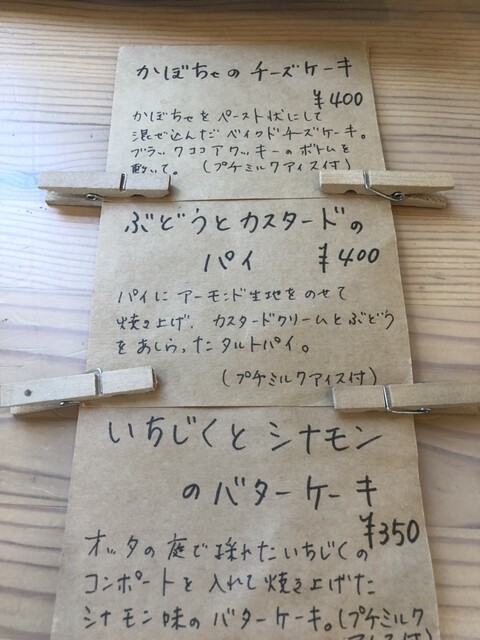 かぼちゃのチーズケーキ
¥400
かぼちゃをペースト状にして
混ぜ込んだベイクドチーズケーキ。
ブラックココアクッキーのボトムを
敷いて。(プチミルクアイス付)
ぶどうとカスタードの
パイ ¥400
パイにアーモンド生地をのせて
焼き上げ、カスタードクリームとぶどう
をあしらったタルトパイ。
(プチミルクアイス付)
いちじくとシナモン
のバターケーキ
¥350
オッタの庭で採れたいちじくの
コンポートを入れて焼き上げた
シナモン味のバターケーキ。(プチミルク
アイス付)